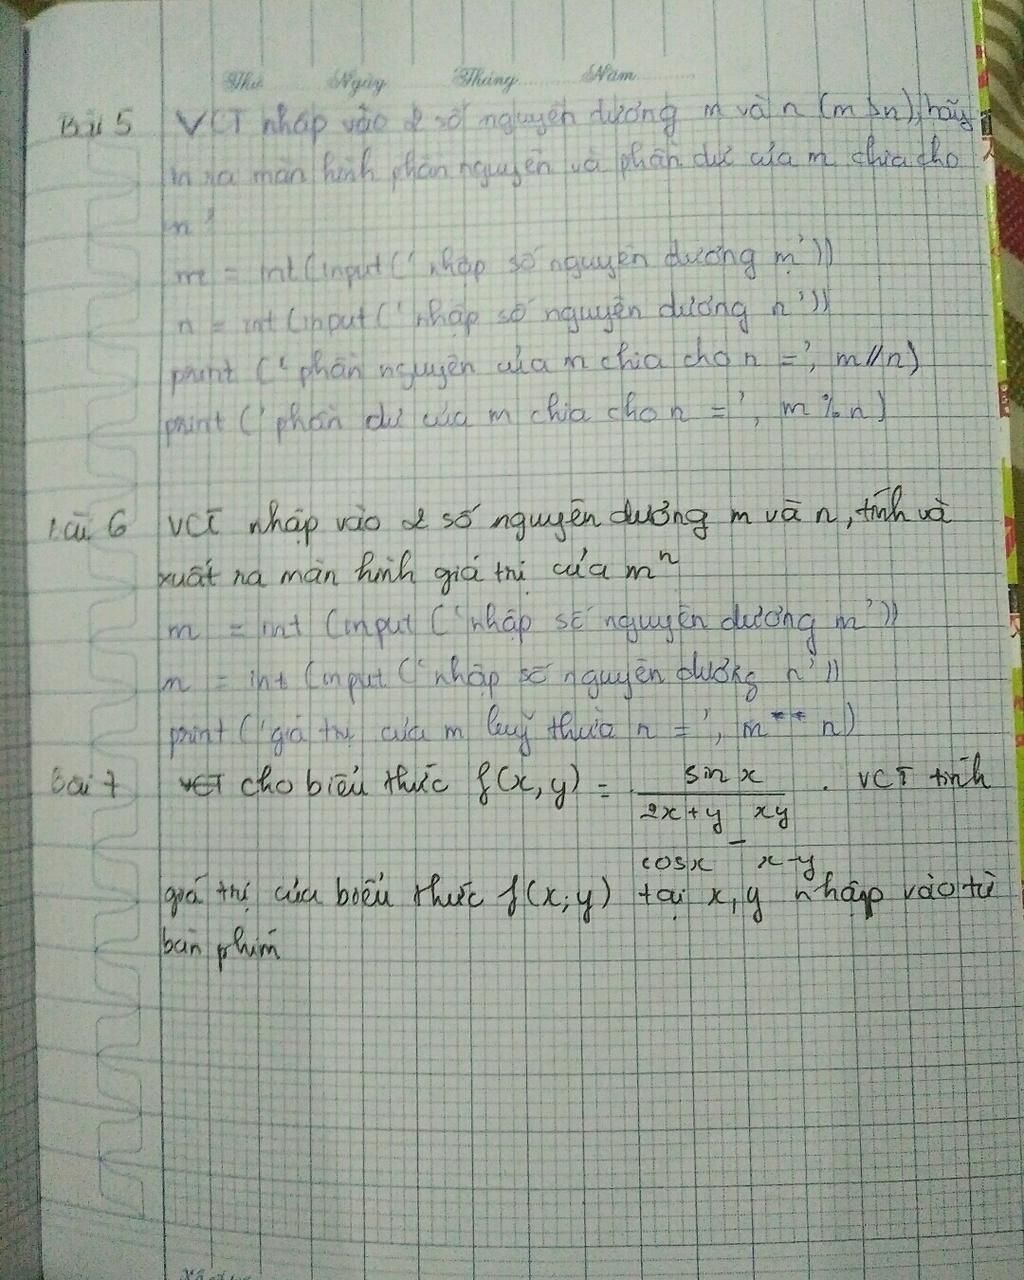 Thứ Ngày Tháng Năm
Bài 5 VCT nhập vào 2 số nguyên dương m và n (m>n), hãy
in ra màn hình phần nguyên và phần dư của m chia cho
n
m = int (input (' nhập số nguyên dương m'))
n = int (input (' nhập số nguyên dương n'))
print (' phần nguyên của m chia cho n =', m//n)
print (' phần dư của m chia cho n =', m % n)
Bài 6 VCT nhập vào 2 số nguyên dương m và n, tính và
xuất ra màn hình giá trị của mⁿ
m = int (input (' nhập số nguyên dương m'))
n = int (input (' nhập số nguyên dương n'))
print (' giá trị của m luỹ thừa n =', m ** n)
Bài 7 VCT cho biểu thức f(x,y) = sin x . VCT tính
2x+y - xy
cosx x-y
giá trị của biểu thức f(x;y) tại x, y nhập vào từ
bàn phím